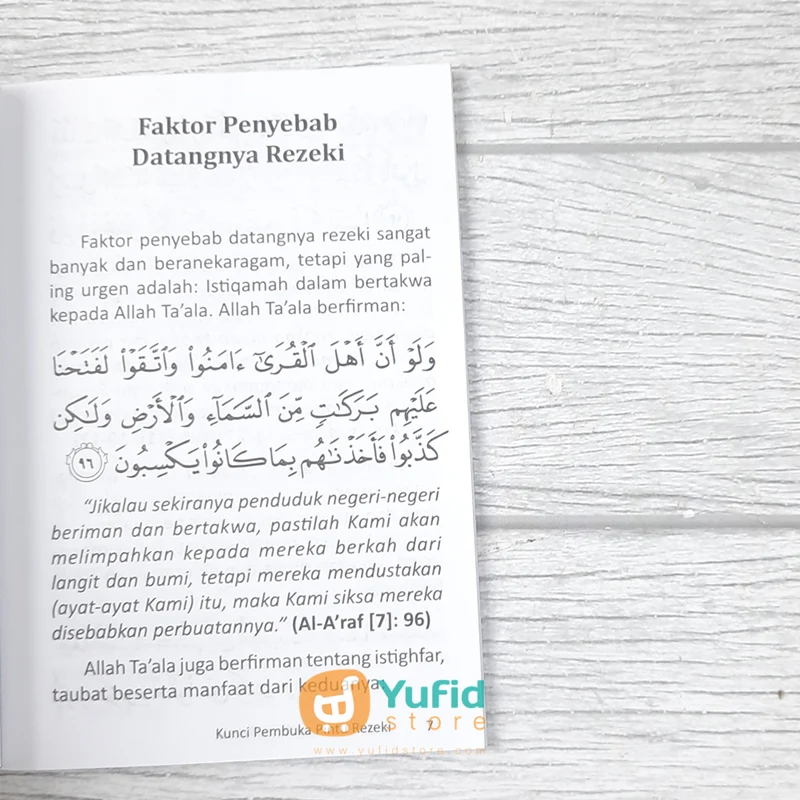 Faktor Penyebab
Datangnya Rezeki
Faktor penyebab datangnya rezeki sangat
banyak dan beranekaragam, tetapi yang pal-
ing urgen adalah: Istiqamah dalam bertakwa
kepada Allah Ta'ala. Allah Ta'ala berfirman:
وَلَوْ أَنَّ أَهْلَ ٱلْقُرَىٰٓ ءَامَنُوا۟ وَٱتَّقَوْا۟ لَفَتَحْنَا
عَلَيْهِم بَرَكَٰتٍ مِّنَ ٱلسَّمَآءِ وَٱلْأَرْضِ وَلَٰكِن
كَذَّبُوا۟ فَأَخَذْنَٰهُم بِمَا كَانُوا۟ يَكْسِبُونَ ٩٦
"Jikalau sekiranya penduduk negeri-negeri
beriman dan bertakwa, pastilah Kami akan
melimpahkan kepada mereka berkah dari
langit dan bumi, tetapi mereka mendustakan
(ayat-ayat Kami) itu, maka Kami siksa mereka
disebabkan perbuatannya." (Al-A'raf [7]: 96)
Allah Ta'ala juga berfirman tentang istighfar,
taubat beserta manfaat dari keduanya:
Kunci Pembuka Pintu Rezeki 7
Yufid
store
www.yufidstore.com